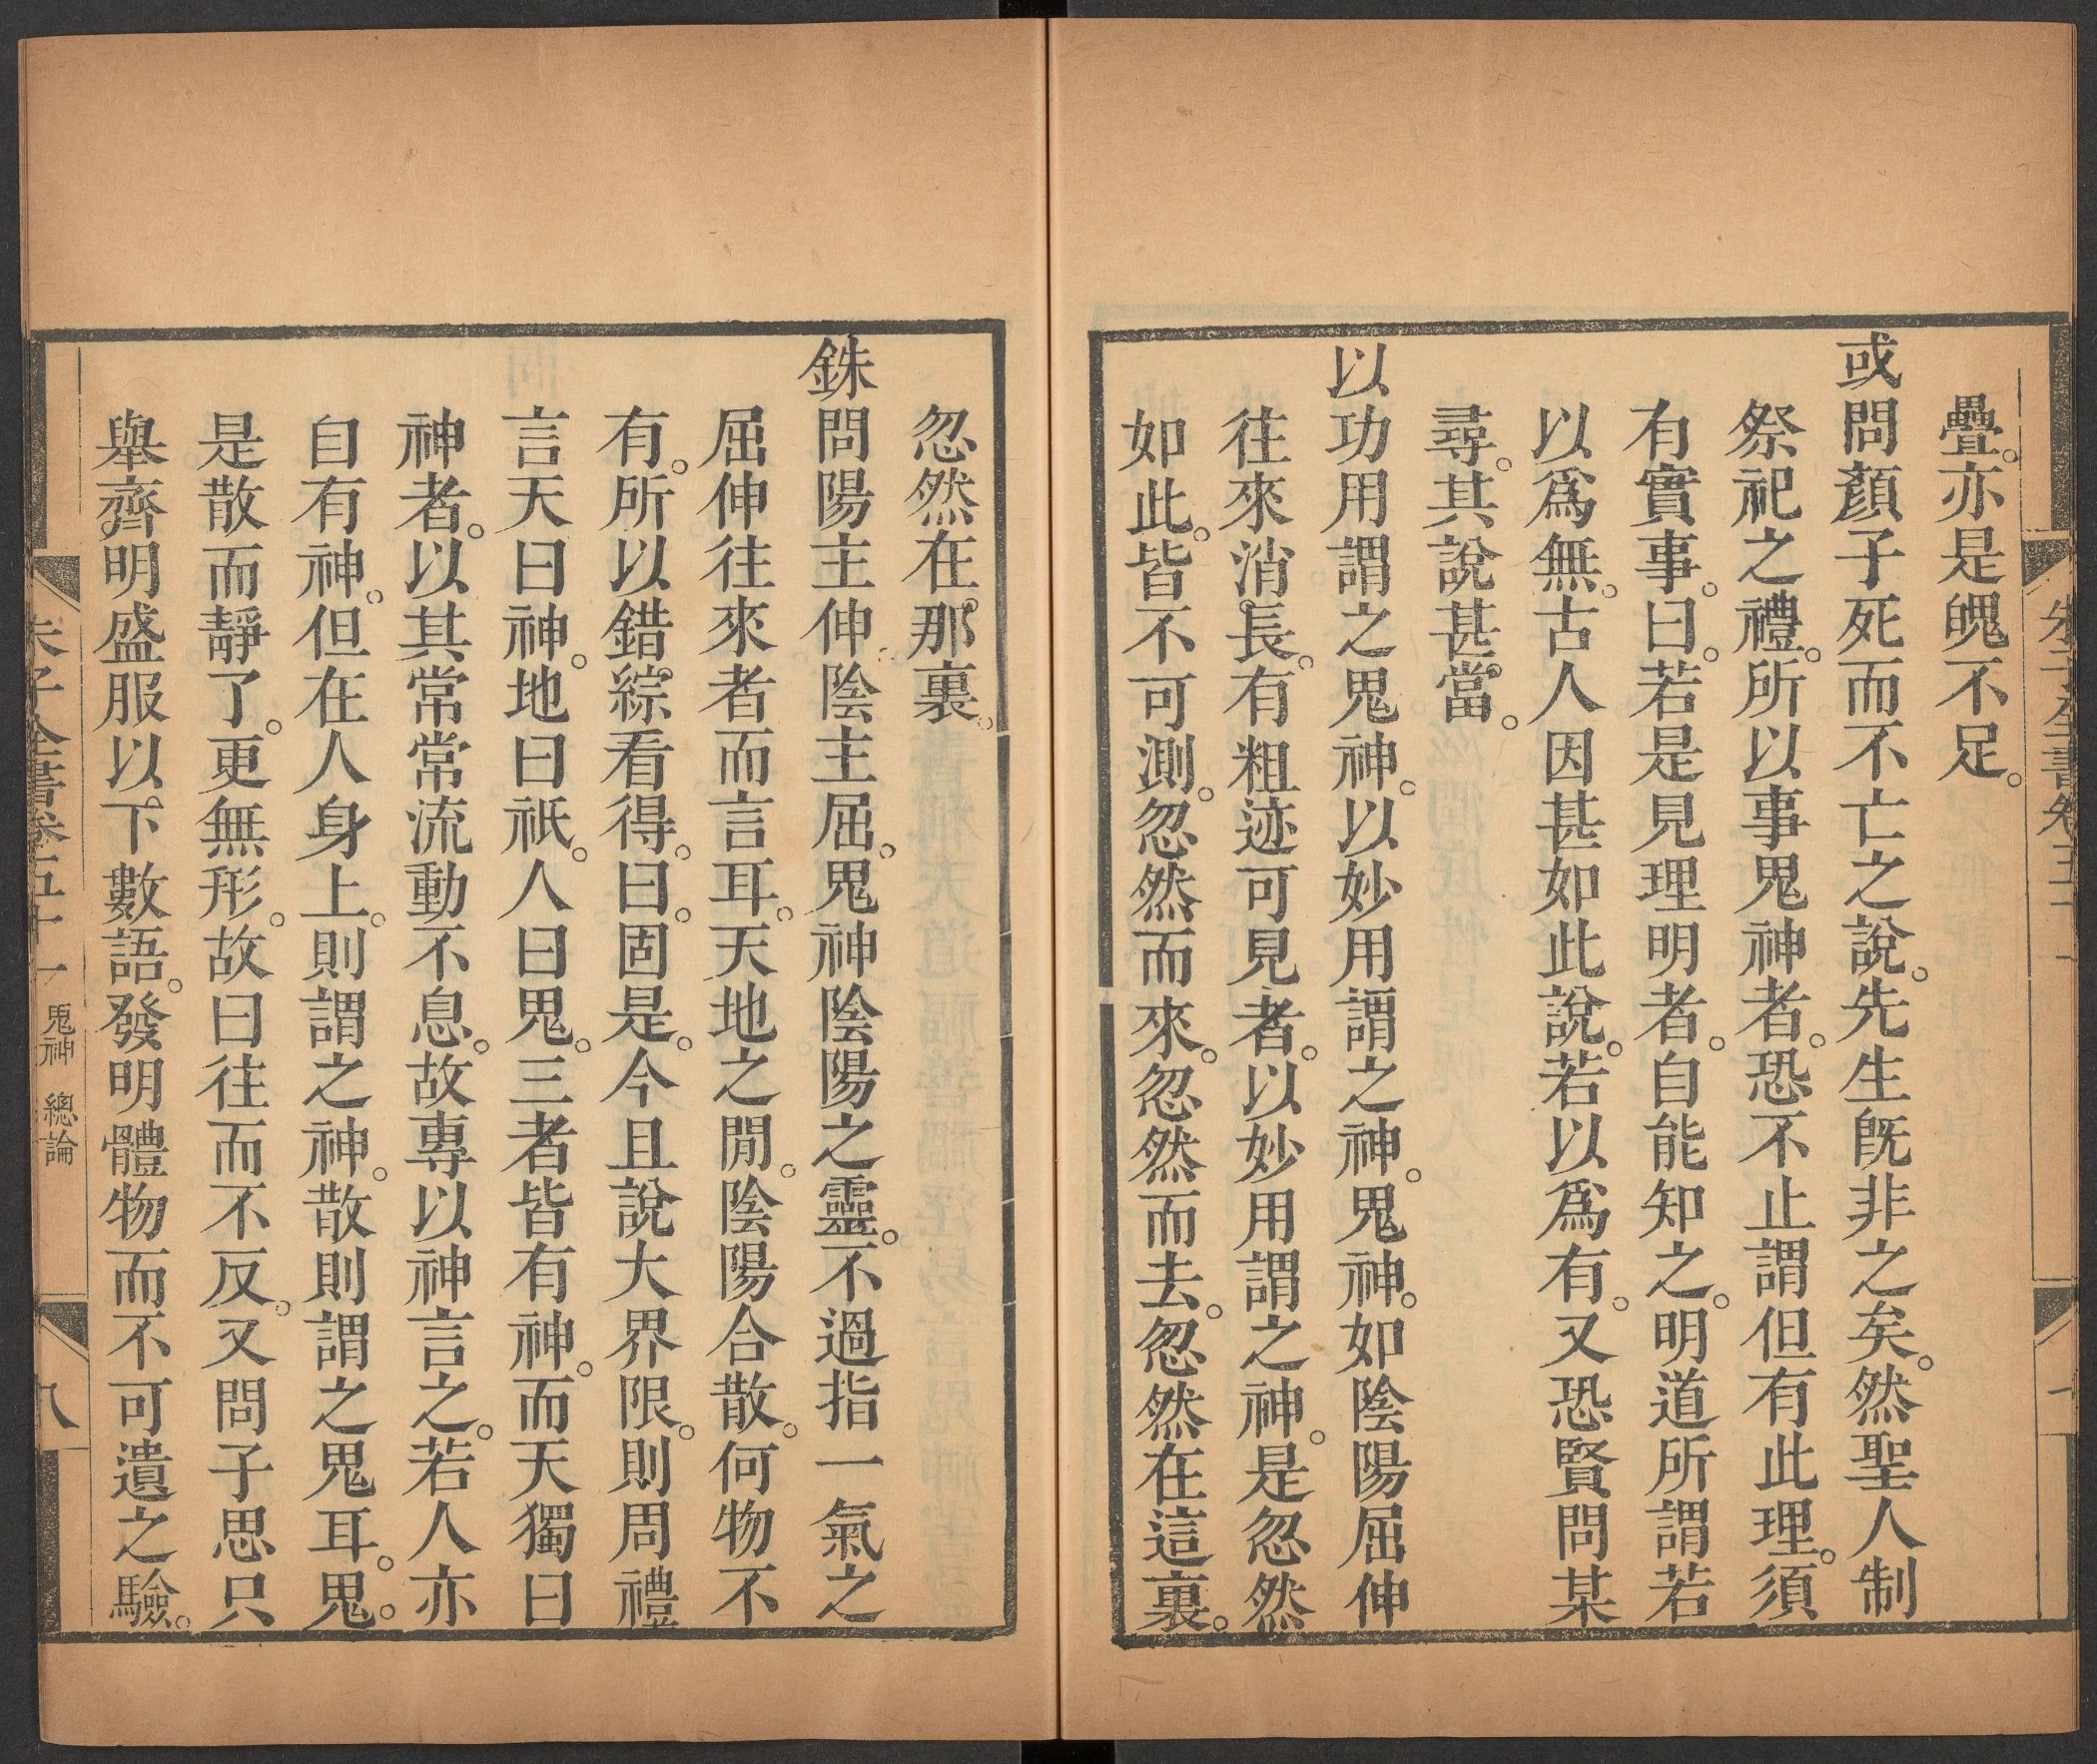 疊。亦是魄不足。
或問顏子死而不亡之說。先生旣非之矣。然聖人制
祭祀之禮。所以事鬼神者。恐不止謂但有此理。須
有實事。曰。若是見理明者。自能知之。明道所謂若
以爲無。古人因甚如此說。若以爲有。又恐賢問某
尋。其說甚當。
以功用謂之鬼神。以妙用謂之神。鬼神。如陰陽屈伸
往來消長。有粗迹可見者。以妙用謂之神。是忽然
如此。皆不可測。忽然而來。忽然而去。忽然在這裏。
忽然在那裏。
銖問陽主伸。陰主屈。鬼神陰陽之靈。不過指一氣之
屈伸往來者而言耳。天地之閒。陰陽合散。何物不
有。所以錯綜看得。曰。固是。今且說大界限。則周禮
言天曰神。地曰祇。人曰鬼。三者皆有神。而天獨曰
神者。以其常常流動不息。故專以神言之。若人亦
自有神。但在人身上。則謂之神。散則謂之鬼耳。鬼。
是散而靜了。更無形。故曰往而不反。又問子思只
舉齊明盛服以。下數語。發明體物而不可遺之驗。
朱子全書卷五十一 鬼神 總論 八